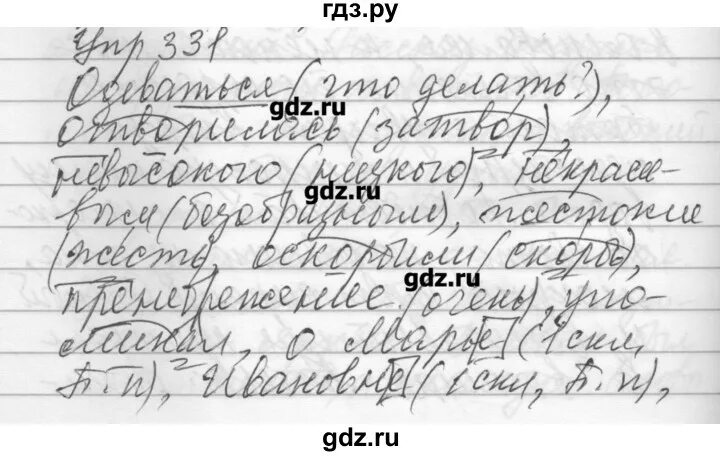 гдз.ру
Упр 331
Одеваться (что делать?),
gdz.ru
отворилось (затвор),
невысокого (низкого)², некраси-
gdz.ru
выси (безобразным), жестокие
(жесть), оскорбили (скорбь),
gdz.ru
пренебрежение (очень), упо-
минал, о Марье (1 скл,
П. п),² Ивановне (1 скл, П. п),
gdz.ru